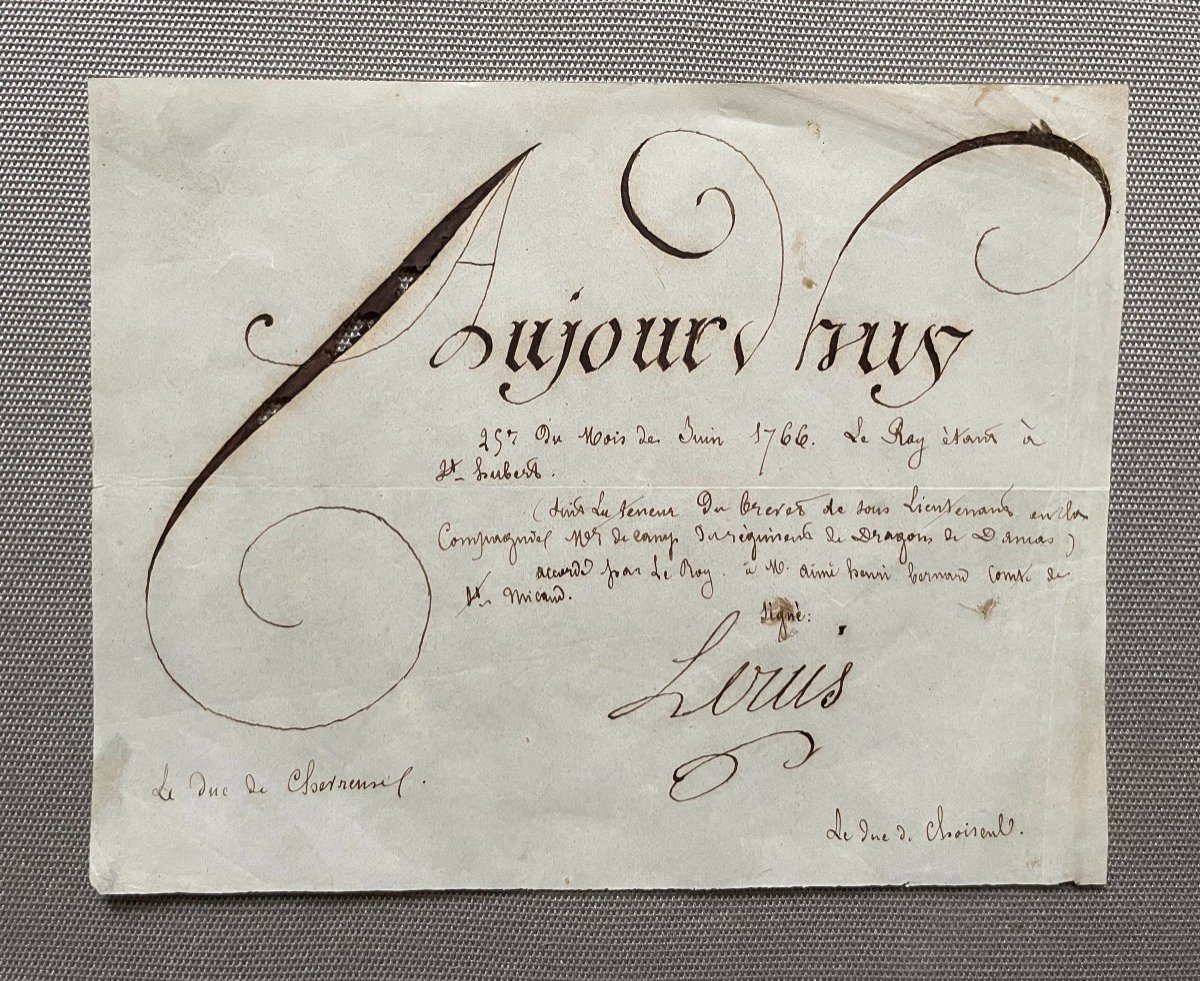 Aujourd'huy
25e. Du Mois de Juin 1766. Le Roy étant à
St. hubert.
(suit La teneur Du brevet de sous Lieutenant en la
Compagnie Mtr de camp du régiment de Dragons de Damas)
accordé par Le Roy. à M. aimé henri bernard comte de
St.
signé:
Louis
Le duc de Chevreuse.
Le duc de Choiseul.